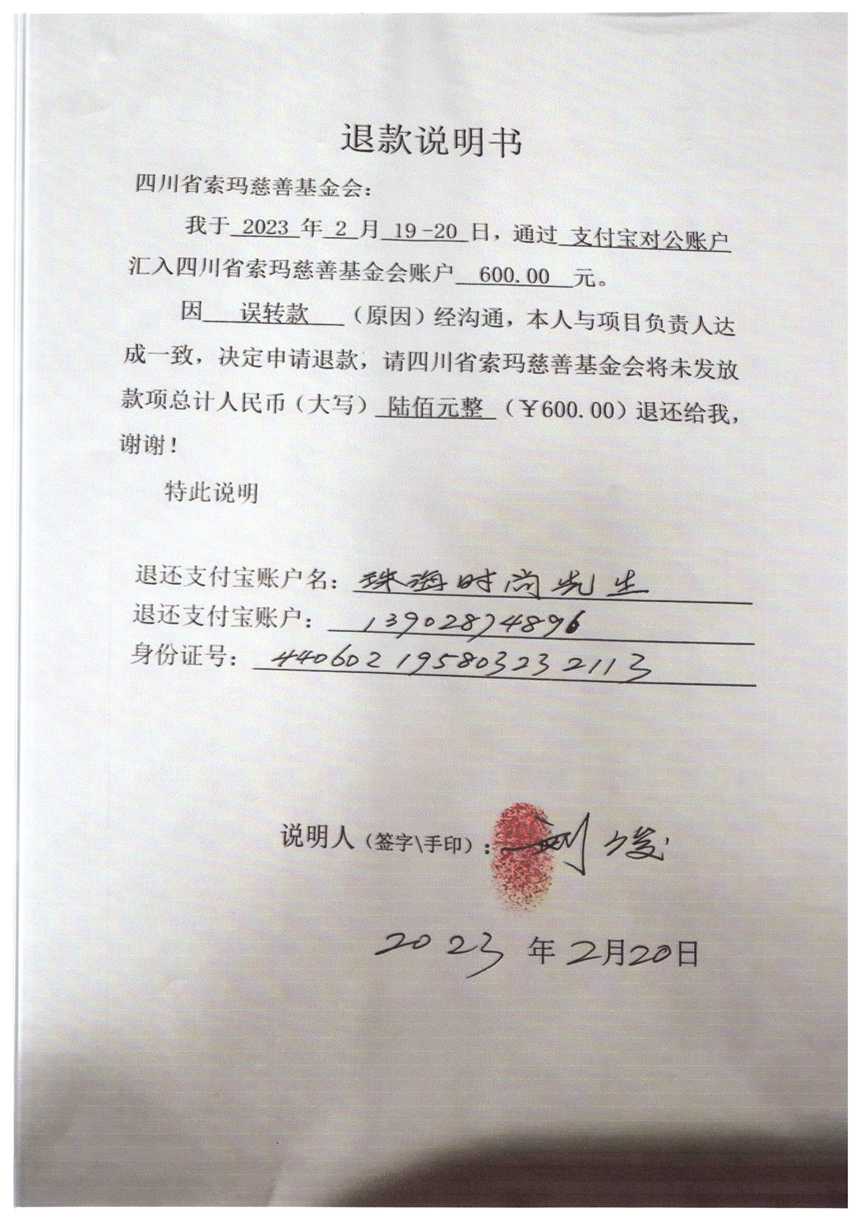 退款说明书
四川省索玛慈善基金会：
我于 2023 年 2 月 19-20 日，通过 支付宝对公账户
汇入四川省索玛慈善基金会账户 600.00 元。
因 误转款 （原因）经沟通，本人与项目负责人达
成一致，决定申请退款，请四川省索玛慈善基金会将未发放
款项总计人民币（大写） 陆佰元整 （￥600.00）退还给我，
谢谢！
特此说明
退还支付宝账户名：珠海时尚先生
退还支付宝账户：13902874896
身份证号：440602195803232113
说明人（签字\手印）：刘俊
2023 年 2月20日